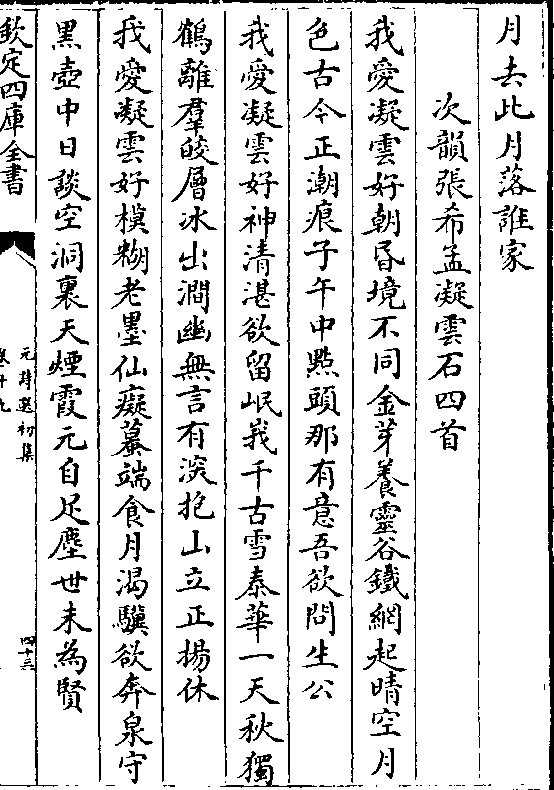 月去此月落誰家
次韻張希孟凝雲石四首
我愛凝雲好朝昏境不同金芽養靈谷鐵網起晴空月
色古今正潮痕子午中㸃頭那有意吾欲問生公
我愛凝雲好神清湛欲留岷峩千古雪泰華一天秋獨
鶴離羣皎層冰出澗幽無言有淡抱山立正揚休
我愛凝雲好模糊老墨仙癡蟇端食月渴驥欲奔泉守
黑壺中日談空洞裏天煙霞元自足塵世未為賢
欽定四庫全書
元詩選初集
卷十九
四十三